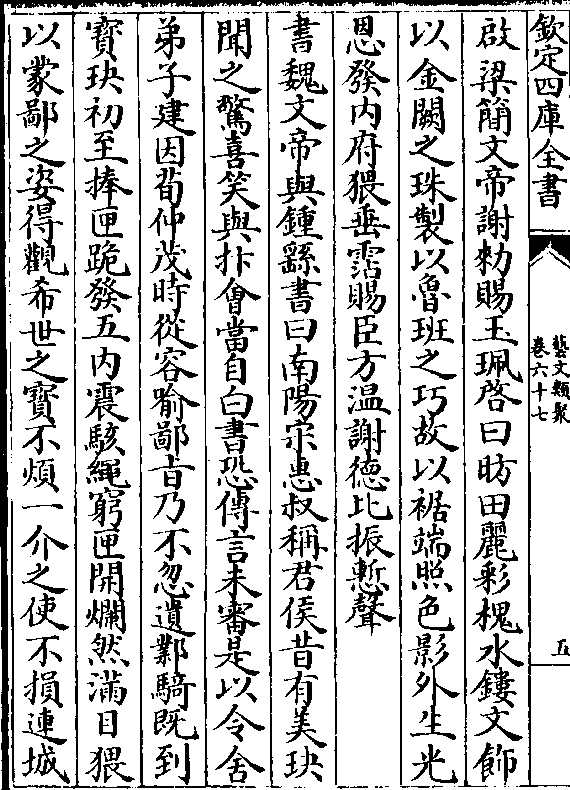 欽定四庫全書
藝文類聚
卷六十七
五
啟梁簡文帝謝勑賜玉珮啓曰昉田麗彩槐水鏤文飾
以金闕之珠製以魯班之巧故以裾端照色影外生光
恩發内府猥垂霑賜臣方温謝德比振慙聲
書魏文帝與鍾繇書曰南陽宗惠叔稱君侯昔有美玦
聞之驚喜笑與抃㑹當自白書恐傳言未審是以令舍
弟子建因荀仲茂時從容喻鄙㫖乃不忽遺鄴騎既到
寶玦初至捧匣跪發五内震駭繩窮匣開爛然滿目猥
以蒙鄙之姿得觀希世之寶不煩一介之使不損連城